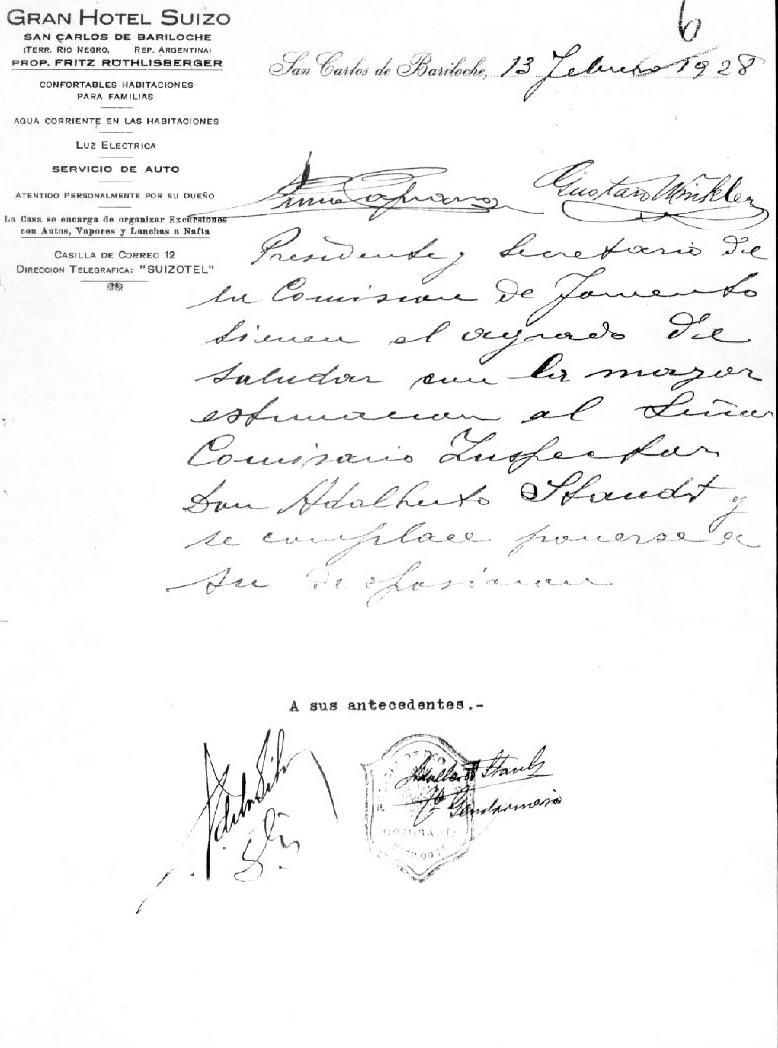 GRAN HOTEL SUIZO
SAN CARLOS DE BARILOCHE
(TERR. RIO NEGRO, REP. ARGENTINA)
PROP. FRITZ RÖTHLISBERGER
CONFORTABLES HABITACIONES
PARA FAMILIAS
AGUA CORRIENTE EN LAS HABITACIONES
LUZ ELECTRICA
SERVICIO DE AUTO
ATENTIDO PERSONALMENTE POR SU DUEÑO
La Casa se encarga de organizar Excursiones
con Autos, Vapores y Lanchas a Nafta
CASILLA DE CORREO 12
DIRECCION TELEGRAFICA: "SUIZOTEL"
6
San Carlos de Bariloche, 13 Febrero 1928
Primo Capraro Gustavo Winkler
Presidente y Secretario de
la Comision de Fomento
tienen el agrado de
saludar con la mayor
estimacion al Señor
Comisario Inspector
Don Adalberto Staudt y
se complace ponerse a
su disposicion
A sus antecedentes.-
Adalberto Staudt
Gendarmeria
COMISARIA